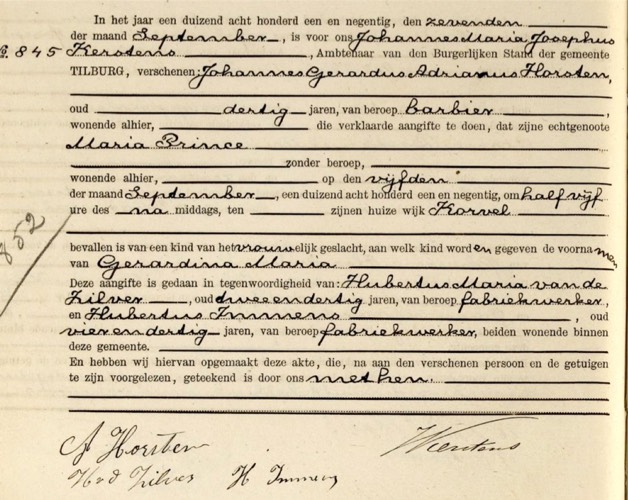 In het jaar een duizend acht honderd een en negentig, den zevenden
der maand September, is voor ons Johannes Maria Josephus
№. 845 Kerstens, Ambtenaar van den Burgerlijken Stand der gemeente
TILBURG, verschenen: Johannes Gerardus Adrianus Horsten,
oud dertig jaren, van beroep barbier,
wonende alhier, die verklaarde aangifte te doen, dat zijne echtgenoote
Maria Prince
zonder beroep,
wonende alhier, op den vijfden
der maand September, een duizend acht honderd een en negentig, om half vijf
ure des na middags, ten zijnen huize wijk Korvel
852
bevallen is van een kind van het vrouwelijk geslacht, aan welk kind worden gegeven de voornamen
van Gerardina Maria
Deze aangifte is gedaan in tegenwoordigheid van: Hubertus Maria van de
Zilver, oud twee en dertig jaren, van beroep fabriekwerker,
en Hubertus Immens, oud
vier en dertig jaren, van beroep fabriekwerker, beiden wonende binnen
deze gemeente.
En hebben wij hiervan opgemaakt deze akte, die, na aan den verschenen persoon en de getuigen
te zijn voorgelezen, geteekend is door ons met hen.
Horsten
Zilver H Immens